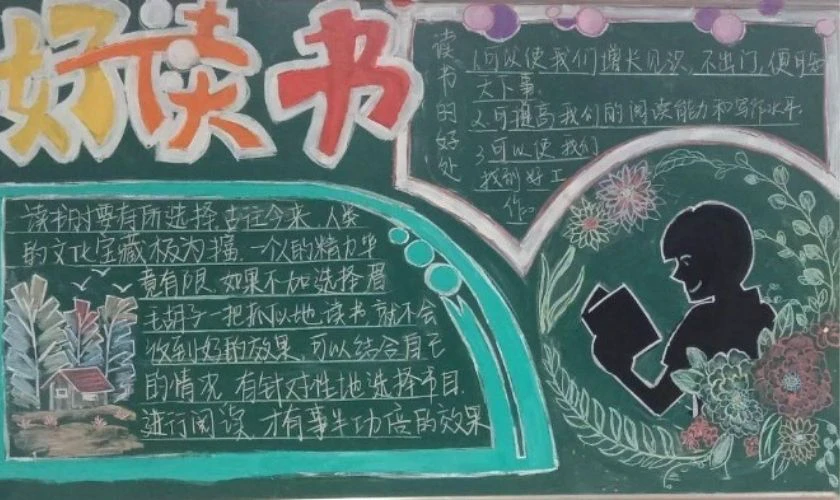 好读书
读书的好处
1.可以使我们增长见识,不出门,便可知
天下事。
2.可提高我们的阅读能力和写作水平
3.可以使我们
找到好工
作。
读书时要有所选择,古往今来,人类
的文化宝藏极为丰富,一个人的精力毕
竟有限,如果不加选择眉
毛胡子一把抓似地读书,就不会
收到好的效果,可以结合自己
的情况,有针对性地选择书目,
进行阅读,才有事半功倍的效果